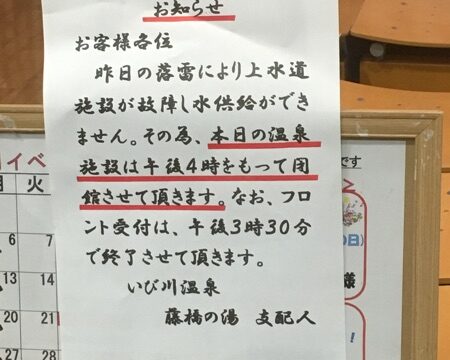 お知らせ
お客様各位
昨日の落雷により上水道
施設が故障し水供給ができ
ません。その為、本日の温泉
施設は午後4時をもって閉
館させて頂きます。なお、フロ
ント受付は、午後3時30分
で終了させて頂きます。
いび川温泉
藤橋の湯 支配人
イベ
月 火
6 7
13 14
20 21
27 28
です
の日)
様